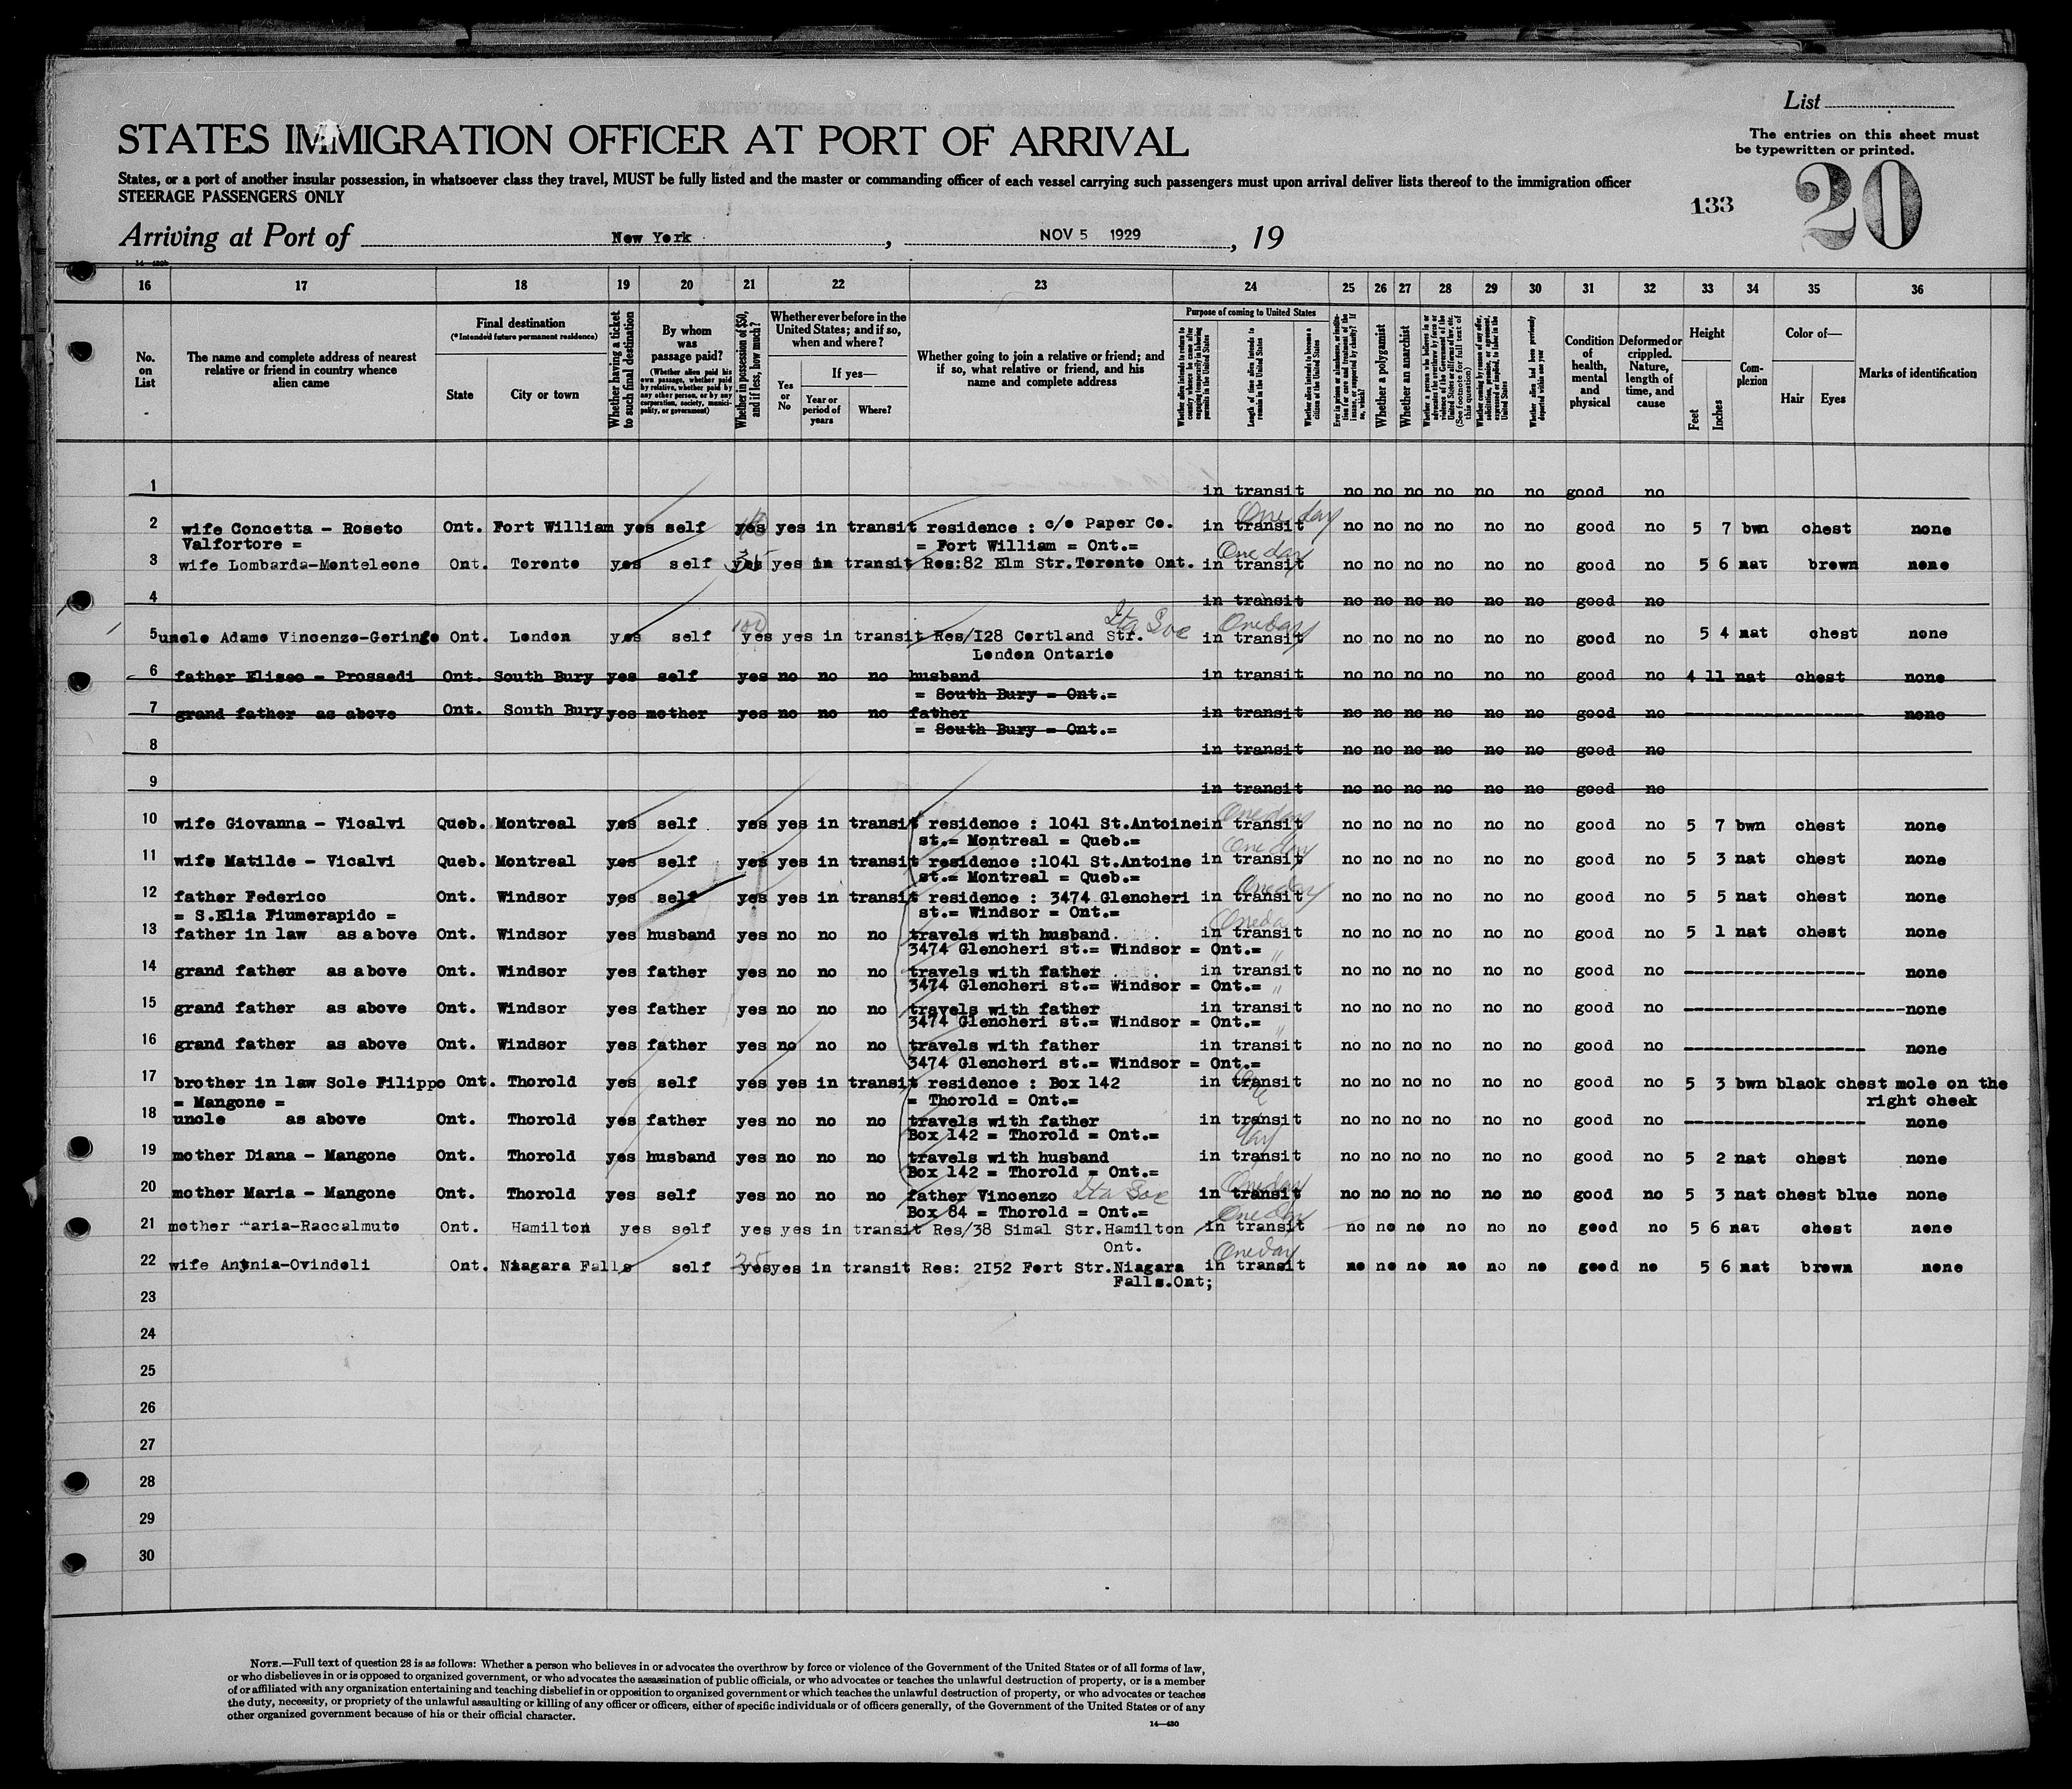 List
STATES IMMIGRATION OFFICER AT PORT OF ARRIVAL
The entries on this sheet must
be typewritten or printed.
States, or a port of another insular possession, in whatsoever class they travel, MUST be fully listed and the master or commanding officer of each vessel carrying such passengers must upon arrival deliver lists thereof to the immigration officer
STEERAGE PASSENGERS ONLY
133
20
Arriving at Port of New York, NOV 5 1929, 19
16 17 18 19 20 21 22 23 24 25 26 27 28 29 30 31 32 33 34 35 36
No. on List
The name and complete address of nearest relative or friend in country whence alien came
Final destination
(*Intended future permanent residence)
State
City or town
Whether having a ticket to such final destination
By whom was passage paid?
(Whether alien paid his own passage, whether paid by relative, whether paid by any other person, or by any corporation, society, municipality, or government)
Whether in possession of $50, and if less, how much?
Whether ever before in the United States; and if so, when and where?
Yes or No
If yes—
Year or period of years
Where?
Whether going to join a relative or friend; and if so, what relative or friend, and his name and complete address
Purpose of coming to United States
Length of time alien intends to remain in the United States
Whether alien intends to become a citizen of the United States
Whether a polygamist
Whether an anarchist
Whether alien had been previously deported within one year
Condition of health, mental and physical
Deformed or crippled. Nature, length of time, and cause
Height
Feet
Inches
Complexion
Color of—
Hair
Eyes
Marks of identification
1 in transit no no no no no no good no
2 wife Concetta - Roseto Ont. Fort William yes self yes yes in transit residence : c/o Paper Co. in transit One day no no no no no no good no 5 7 bwn chest none
Valfortore = = Fort William = Ont.=
3 wife Lombarda-Monteleone Ont. Toronto yes self yes 35 yes in transit Res:82 Elm Str.Toronto Ont. in transit One day no no no no no no good no 5 6 nat brown none
4 in transit no no no no no no good no
5 uncle Adamo Vincenzo-Geringe Ont. London yes self 100 yes yes in transit Res/I28 Cortland Str. in transit One day no no no no no no good no 5 4 nat chest none
London Ontario
6 father Eliseo - Prossedi Ont. South Bury yes self yes no no no husband in transit no no no no no no good no 4 11 nat chest none
= South Bury = Ont.=
7 grand father as above Ont. South Bury yes mother yes no no no father in transit no no no no no no good no none
= South Bury = Ont.=
8 in transit no no no no no no good no
9 in transit no no no no no no good no
10 wife Giovanna - Vicalvi Queb. Montreal yes self yes yes in transit residence : 1041 St.Antoine in transit One day no no no no no no good no 5 7 bwn chest none
st.= Montreal = Queb.=
11 wife Matilde - Vicalvi Queb. Montreal yes self yes yes in transit residence :1041 St.Antoine in transit One day no no no no no no good no 5 3 nat chest none
st.= Montreal = Queb.=
12 father Federico Ont. Windsor yes self yes yes in transit residence : 3474 Glencheri in transit One day no no no no no no good no 5 5 nat chest none
= S.Elia Fiumerapido = st.= Windsor = Ont.=
13 father in law as above Ont. Windsor yes husband yes no no no travels with husband in transit One day no no no no no no good no 5 1 nat chest none
3474 Glencheri st.= Windsor = Ont.= "
14 grand father as above Ont. Windsor yes father yes no no no travels with father in transit no no no no no no good no none
3474 Glencheri st.= Windsor = Ont.= "
15 grand father as above Ont. Windsor yes father yes no no no travels with father in transit no no no no no no good no none
3474 Glencheri st.= Windsor = Ont.= "
16 grand father as above Ont. Windsor yes father yes no no no travels with father in transit no no no no no no good no none
3474 Glencheri st.= Windsor = Ont.=
17 brother in law Sole Filippo Ont. Thorold yes self yes yes in transit residence : Box 142 in transit One no no no no no no good no 5 3 bwn black chest mole on the
= Mangone = = Thorold = Ont.= right cheek
18 uncle as above Ont. Thorold yes father yes no no no travels with father in transit no no no no no no good no none
Box 142 = Thorold = Ont.= day
19 mother Diana - Mangone Ont. Thorold yes husband yes no no no travels with husband in transit no no no no no no good no 5 2 nat chest none
Box 142 = Thorold = Ont.=
20 mother Maria - Mangone Ont. Thorold yes self yes no no no father Vincenzo in transit One day no no no no no no good no 5 3 nat chest blue none
Box 84 = Thorold = Ont.=
21 mother Maria-Raccalmuto Ont. Hamilton yes self yes yes in transit Res/38 Simal Str.Hamilton in transit One day no no no no no no good no 5 6 nat chest none
Ont.
22 wife Antnia-Ovindoli Ont. Niagara Falls self 25 yes yes in transit Res: 2I52 Fort Str.Niagara in transit One day no no no no no no good no 5 6 nat brown none
Falls.Ont;
23
24
25
26
27
28
29
30
NOTE.—Full text of question 28 is as follows: Whether a person who believes in or advocates the overthrow by force or violence of the Government of the United States or of all forms of law,
or who disbelieves in or is opposed to organized government, or who advocates the assassination of public officials, or who advocates or teaches the unlawful destruction of property, or is a member
of or affiliated with any organization entertaining and teaching disbelief in or opposition to organized government or which teaches the unlawful destruction of property, or who advocates or teaches
the duty, necessity, or propriety of the unlawful assaulting or killing of any officer or officers, either of specific individuals or of officers generally, of the Government of the United States or of any
other organized government because of his or their official character.
14—430